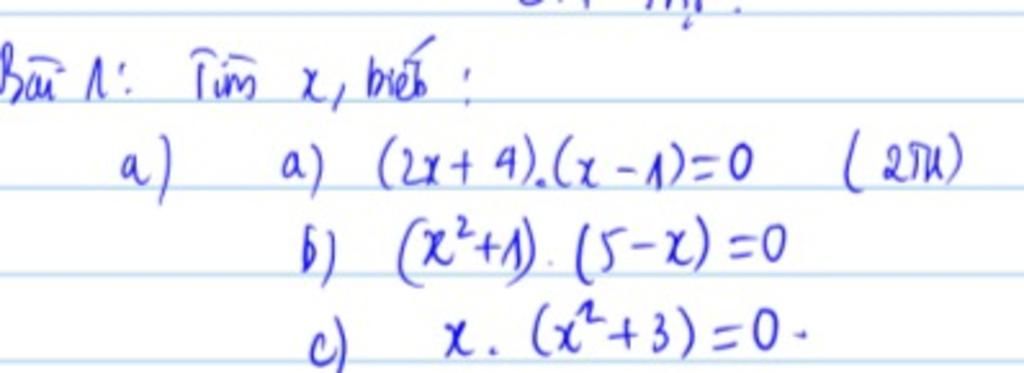 Bài 1: Tìm x, biết:
a) a) (2x + 4).(x - 1) = 0 (2TH)
b) (x²+1). (5-x) = 0
c) x. (x²+3) = 0.